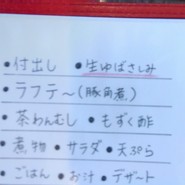 ・付出し ・生ゆばさしみ
・ラフテ〜(豚角煮)
・茶わんむし ・もずく酢
・煮物・サラダ・天ぷら
・ごはん・お汁・デザート